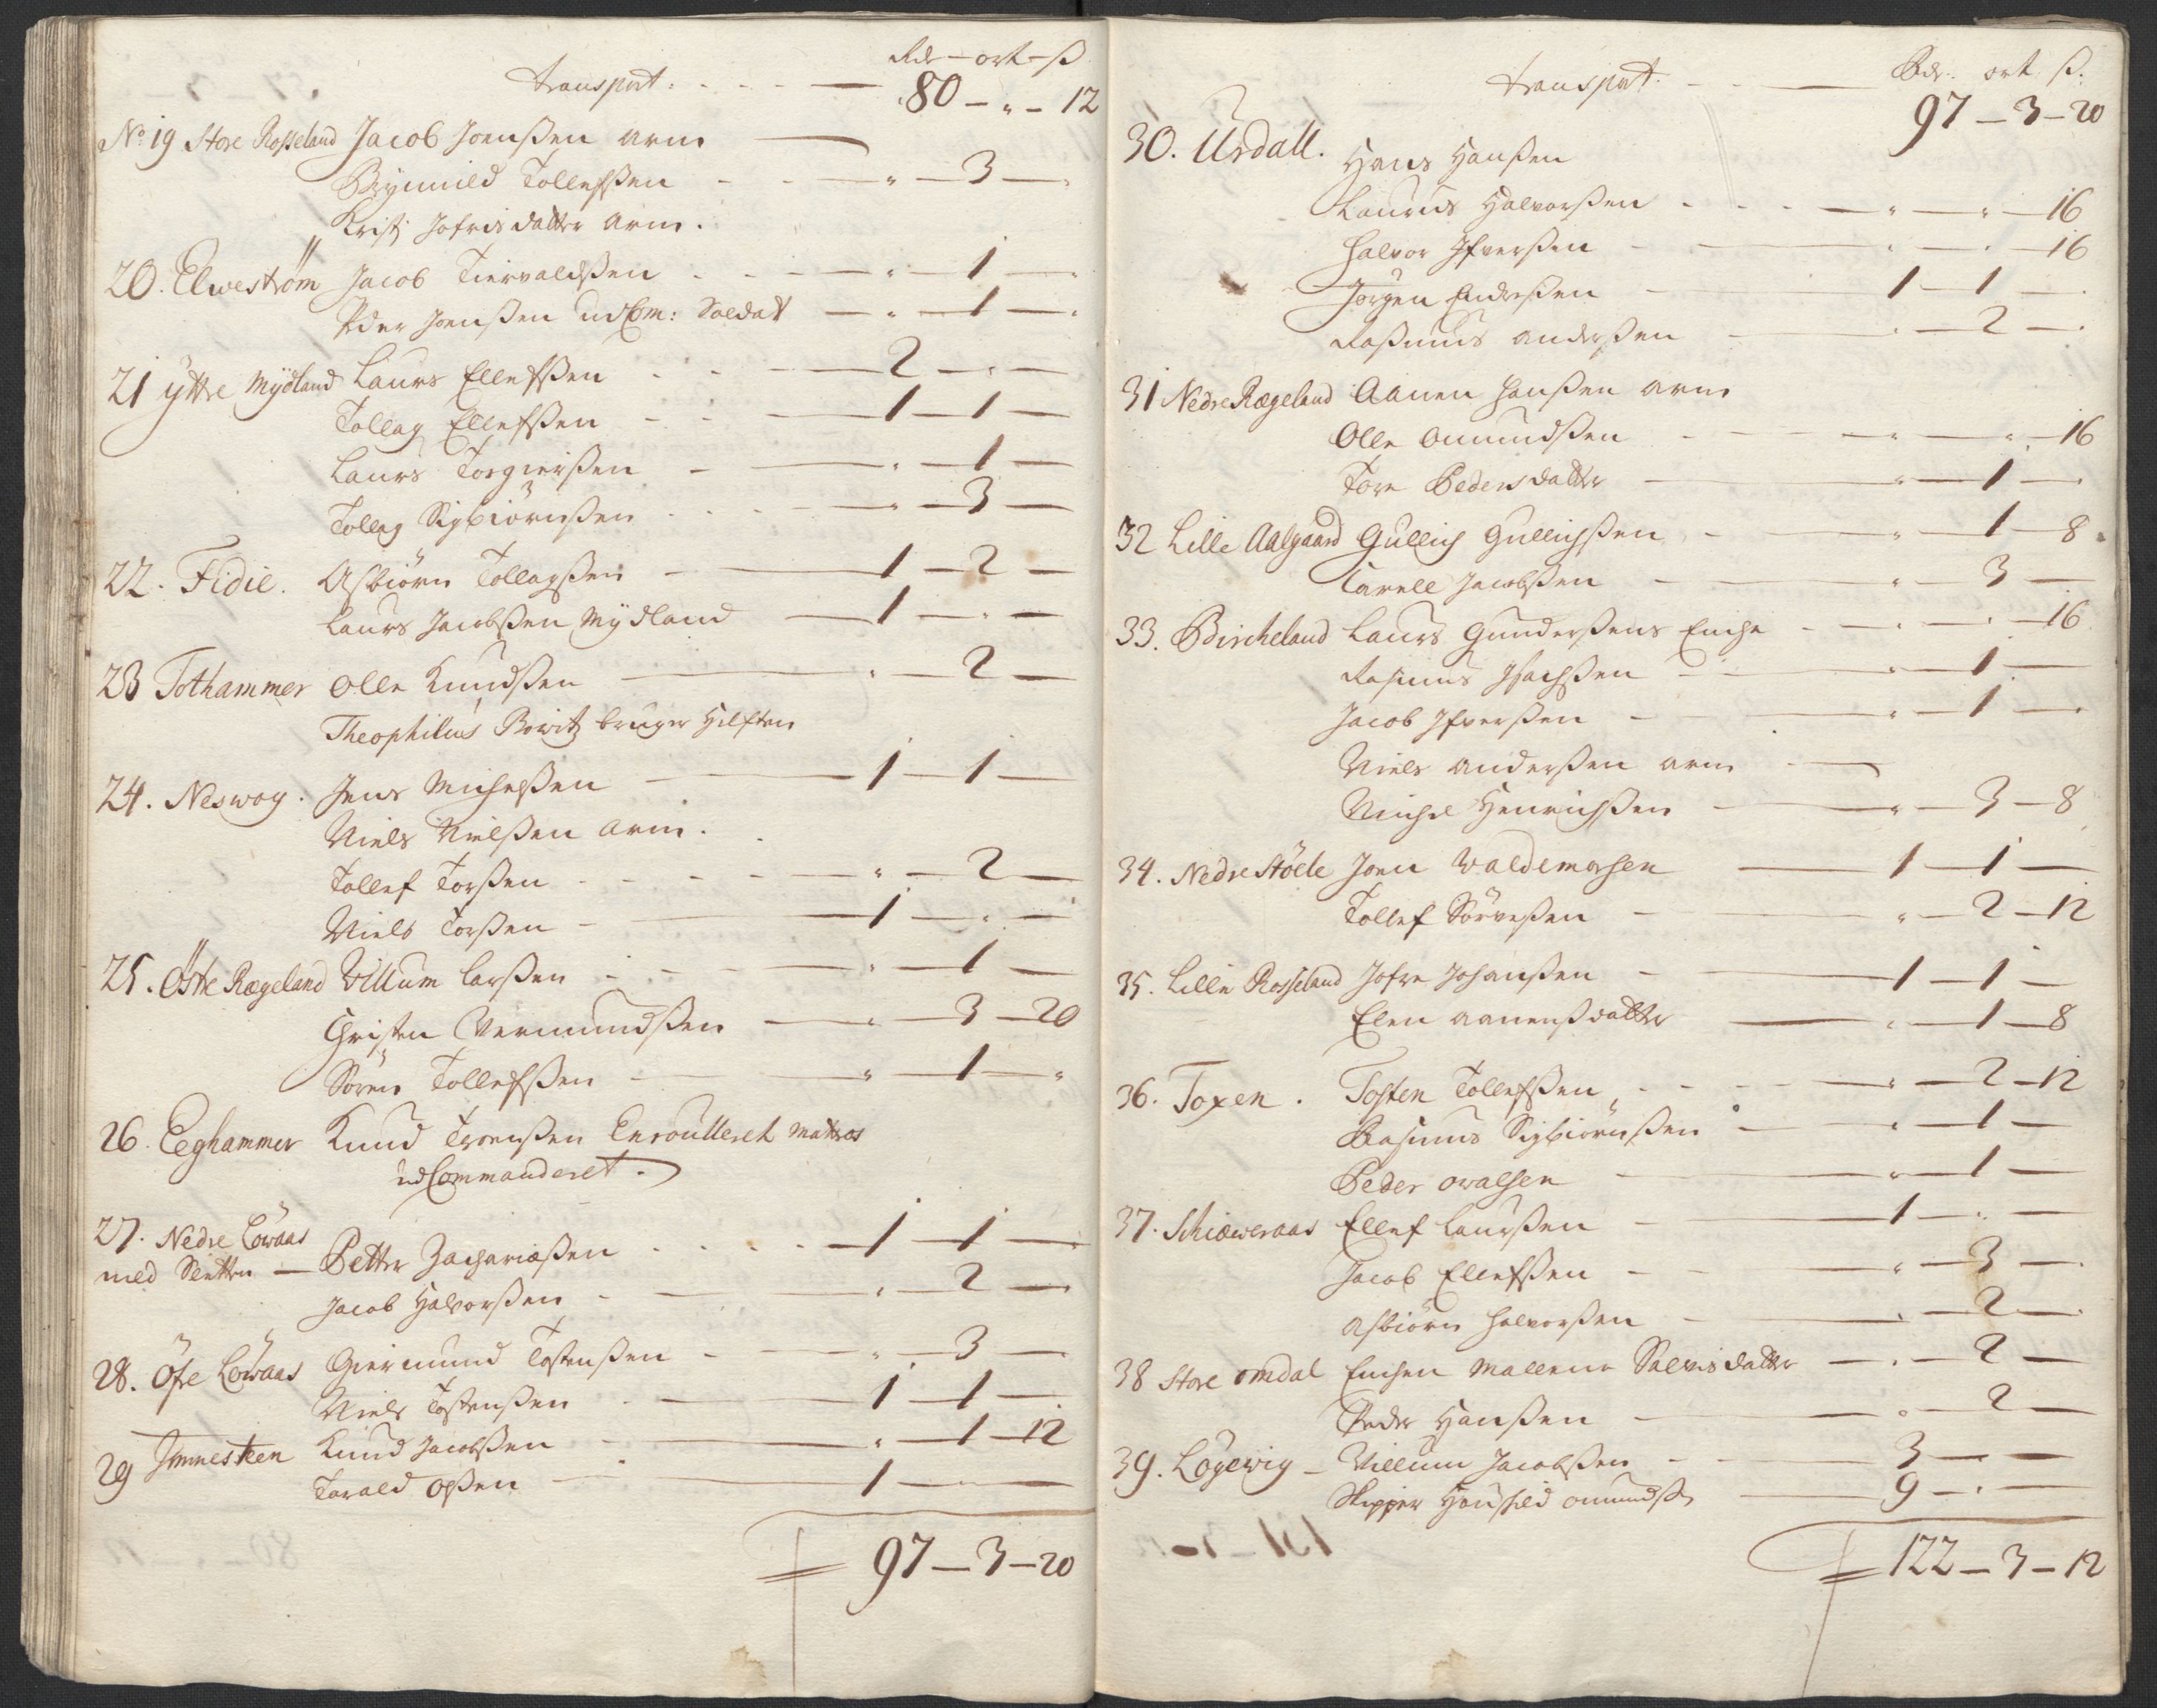 Rdr — ort — ß
transport . . . . — 80 — " — 12
No 19 Store Rosseland Jacob Joensßen arm —
Brynnild Tollefsßen - - " — 3 — "
Kristi Jofrisdatter arm .
20. Elwestrøm Jacob Tiervaldsßen . . - — " — 1 — "
Peder Joensßen udCom: Soldat — " — 1 — "
21 ÿttre Mÿdland Laurs Ellefsßen . . - — 2 — " —
Tollag Ellefsßen - - — 1 — 1 —
Laurs Torgiersßen - — " — 1 —
Tollag Sigbiörnsßen . . . — " — 3 —
22. Fidie. Asbiörn Tollagsßen - — 1 — 2 —
Laurs Jacobsßen Mÿdland — 1 — " —
23 Tothammer Olle Knudsßen — " — 2 —
Theophilus Bowitz bruger Helften
24. Neswog. Jens Michelsßen - — 1 — 1 —
Niels Nielsßen arm .
Tollef Torsßen - - - — " — 2 —
Niels Torsßen - — 1 — " —
25. Östre Rægeland Villum Larsßen - - - — " — 1 —
Christen Vermundsßen — " — 3 — 20
Sören Tollefsßen — " — 1 — "
26. Eeghammer Knud Tronsßen Enroulleret Matros
udCommanderet .
27. Nedre Löwaas
med Sletten — Petter Zachariæsßen . . . . — 1 — 1 —
Jacob Halvorsßen - — " — 2 —
28. Öfre Löwaas Giermund Tostensßen - — " — 3 —
Niels Tostensßen - — 1 — 1 —
29 Tunnesteen Knud Jacobsßen - — " — 1 — 12
Tarald Osßen — 1 — —
97 — 3 — 20
transport. - - — Rdr. ort ß.
97 — 3 — 20
30. Urdall. Hans Hansßen
Laurids Halvorsßen . . . — " — " — 16
Halvor Ifversßen - — " — " — 16
Jörgen Endresßen — 1 — 1 — "
Rasmus Andersßen — " — 2 — "
31 Nedre Rægeland Aanen Hansßen arm
Olle Omundsßen - — " — " — 16
Tore Pedersdatter — " — 1 — "
32 Lille Aalgaard Gullich Gullichsßen - — " — 1 — 8
Tarell Jacobsßen - — " — 3 —
33. Bircheland Laurs Gundersßens Enche - — " — " — 16
Rasmus Isachsßen - — " — 1 —
Jacob Ifversßen - — " — 1 — "
Niels Andersßen arm —
Michel Henrichsßen - — " — 3 — 8
34. Nedre Stöele Joen Waldemarsen — 1 — 1 —
Tollef Sörensßen - — " — 2 — 12
35. Lille Rosseland Jofre Johansßen - — 1 — 1 —
Elen Aanensßdatter — " — 1 — 8
36. Toxen . Tosten Tollefsßen . - - — " — 2 — 12
Rasmus Sigbiörnsßen - — " — 1 —
Peder Owalsen — " — 1 —
37. Schiæweraas Ellef Laursßen - — 1 — " —
Jacob Ellefsßen - — " — 3 — "
Asbiörn Halvorsßen - — " — 2 — "
38 Store Omdal Enchen Mallene Salvisdatter — " — 2 —
Peder Hansßen - — " — 2 —
39. Lögewig - Villum Jacobsßen - - — 3 — " —
Skipper Omundsß — 9 — " —
122 — 3 — 12